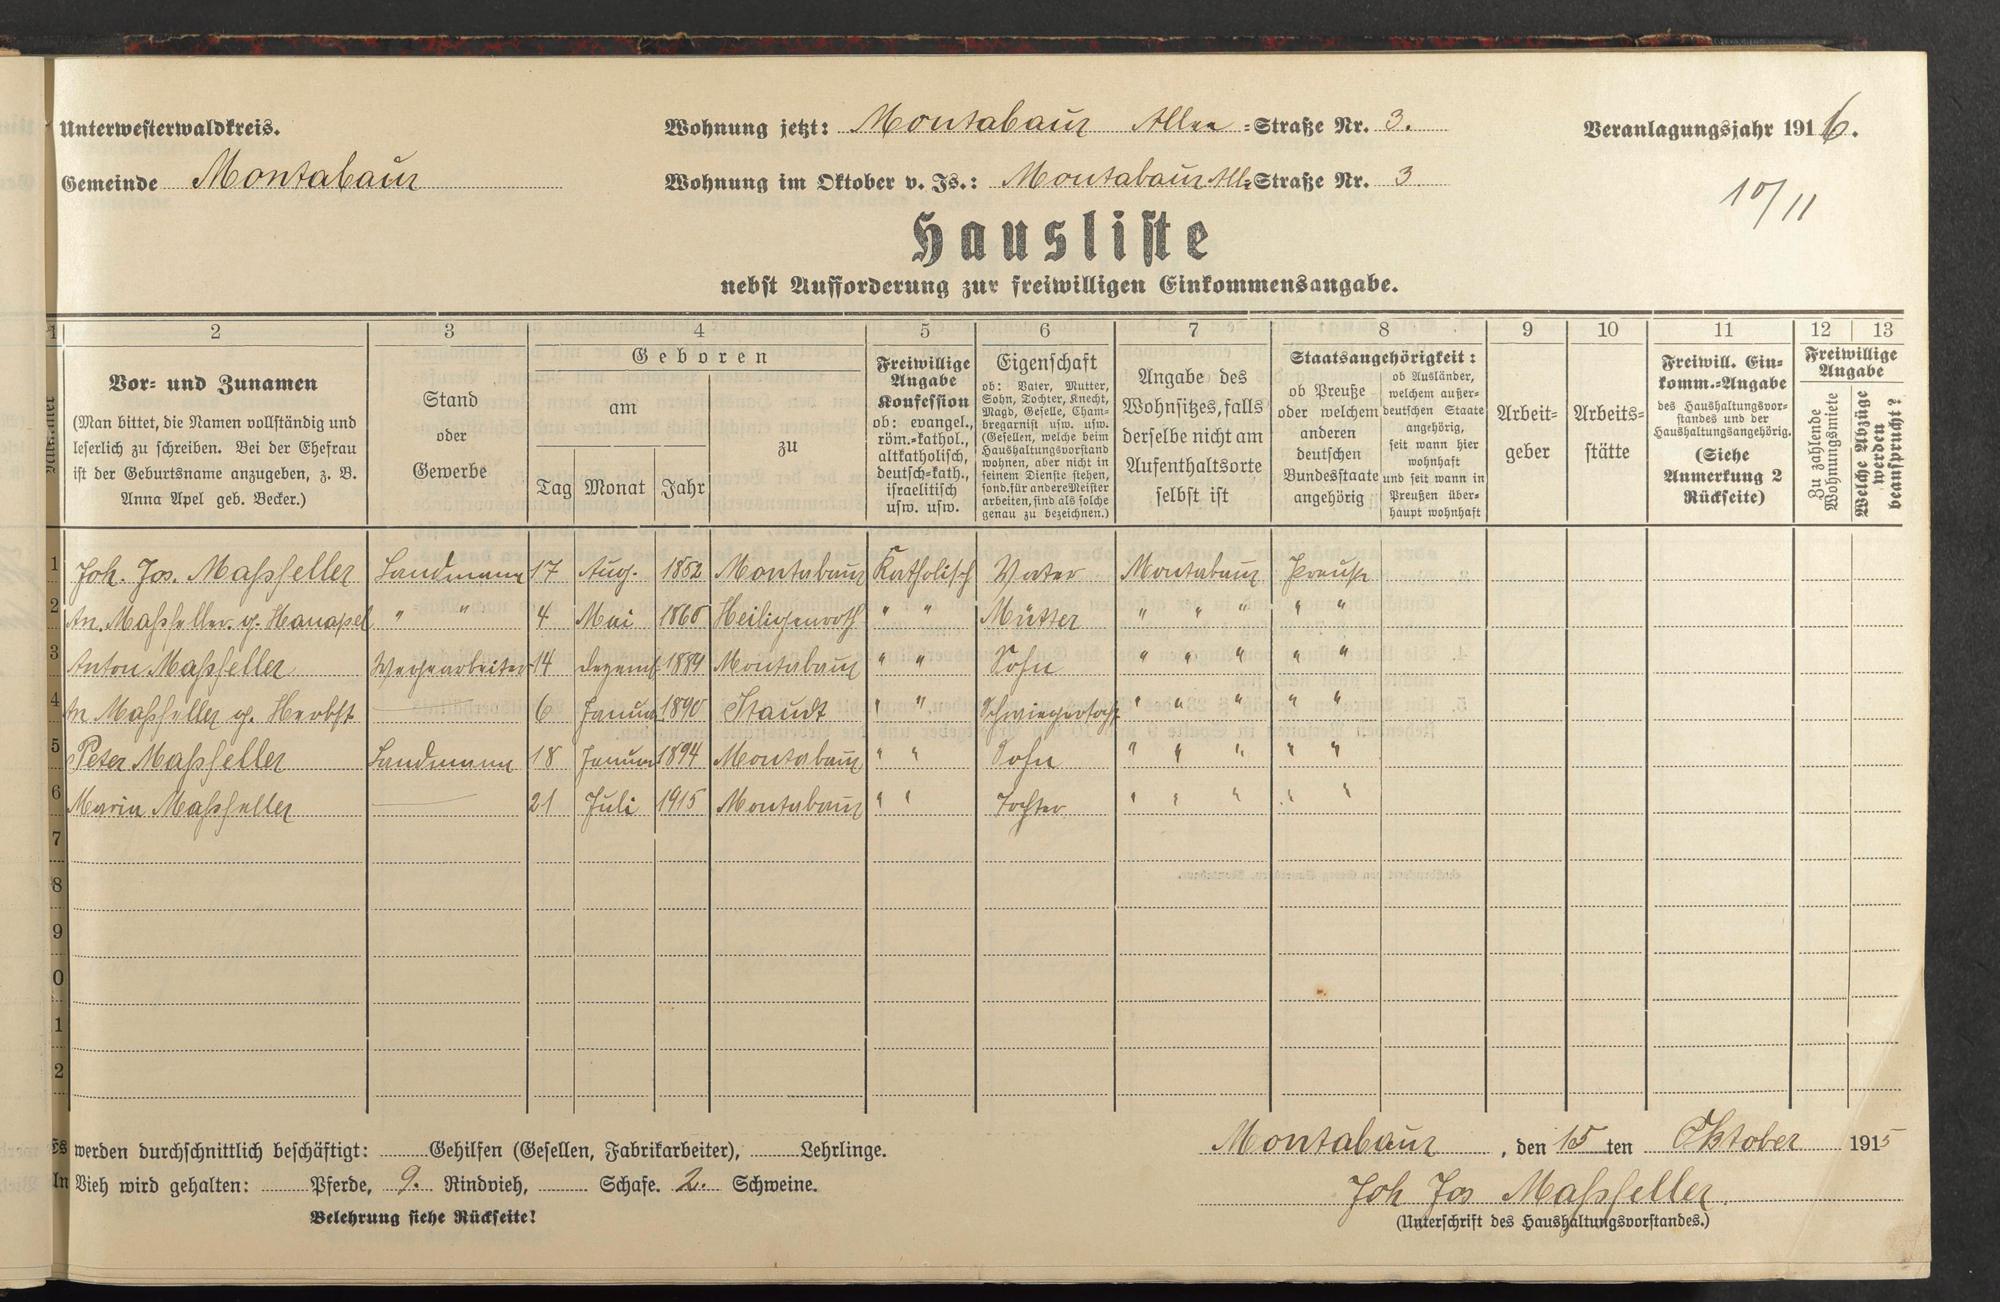 Unterwesterwaldkreis.
Gemeinde Montabaur
Wohnung jetzt: Montabaur Allee =Straße Nr. 3.
Wohnung im Oktober v. Js.: Montabaur All=Straße Nr. 3
Veranlagungsjahr 1916.
10/11
Hausliste
nebst Aufforderung zur freiwilligen Einkommensangabe.
1 2 3 4 5 6 7 8 9 10 11 12 13
Vor= und Zunamen
(Man bittet, die Namen vollständig und
leserlich zu schreiben. Bei der Ehefrau
ist der Geburtsname anzugeben, z. B.
Anna Apel geb. Becker.)
Stand
oder
Gewerbe
Geboren
am
Tag Monat Jahr
zu
Freiwillige
Angabe
Konfession
ob: evangel.,
röm.=kathol.,
altkatholisch,
deutsch=kath.,
israelitisch
usw. usw.
Eigenschaft
ob: Vater, Mutter,
Sohn, Tochter, Knecht,
Magd, Geselle, Cham=
bregarnist usw. usw.
(Gesellen, welche beim
Haushaltungsvorstand
wohnen, aber nicht in
seinem Dienste stehen,
sond. für andere Meister
arbeiten, sind als solche
genau zu bezeichnen.)
Angabe des
Wohnsitzes, falls
derselbe nicht am
Aufenthaltsorte
selbst ist
Staatsangehörigkeit:
ob Preuße
oder welchem
anderen
deutschen
Bundesstaate
angehörig
ob Ausländer,
welchem außer=
deutschen Staate
angehörig,
seit wann hier
wohnhaft
und seit wann in
Preußen über=
haupt wohnhaft
Arbeit=
geber
Arbeits=
stätte
Freiwill. Ein=
komm.=Angabe
des Haushaltungsvor=
standes und der
Haushaltungsangehörig.
(Siehe
Anmerkung 2
Rückseite)
Freiwillige
Angabe
Zu zahlende
Wohnungsmiete
Welche Abzüge
werden
beansprucht?
1 Joh. Jos. Maßfeller Landmann 17 Aug. 1852 Montabaur Katholisch Vater Montabaur Preuße
2 An. Maßfeller. g. Hanapel " " 4 Mai 1860 Heiligenroth " " Mutter " " " " "
3 Anton Maßfeller Wegearbeiter 14 Dezemb 1889 Montabaur " " Sohn " " " " "
4 An Maßfeller g. Herbst 6 Januar 1890 Staudt " " Schwiegertocht " " " " "
5 Peter Maßfeller Landmann 18 Januar 1894 Montabaur " " Sohn " " " " "
6 Maria Maßfeller 21 Juli 1915 Montabaur " " Tochter " " " " "
7
8
9
0
1
2
Es werden durchschnittlich beschäftigt: Gehilfen (Gesellen, Fabrikarbeiter), Lehrlinge.
In Vieh wird gehalten: Pferde, 9. Rindvieh, Schafe. 2. Schweine.
Belehrung siehe Rückseite!
Montabaur, den 15 ten Oktober 1915
Joh Jos Maßfeller.
(Unterschrift des Haushaltungsvorstandes.)